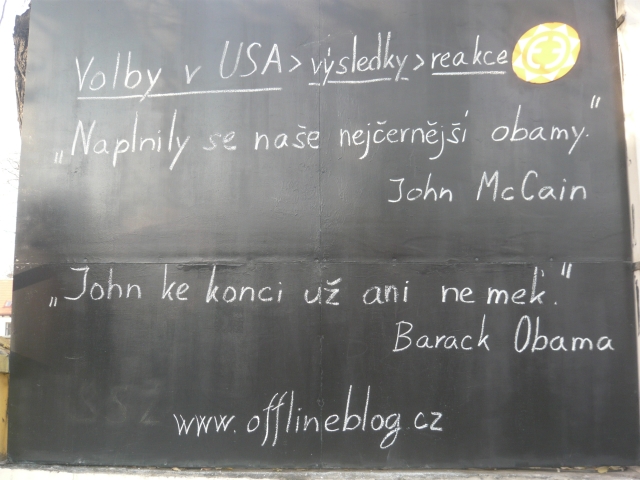 Volby v USA > výsledky > reakce
„Naplnily se naše nejčernější obamy."
John McCain
„John ke konci už ani nemek."
Barack Obama
www.offlineblog.cz